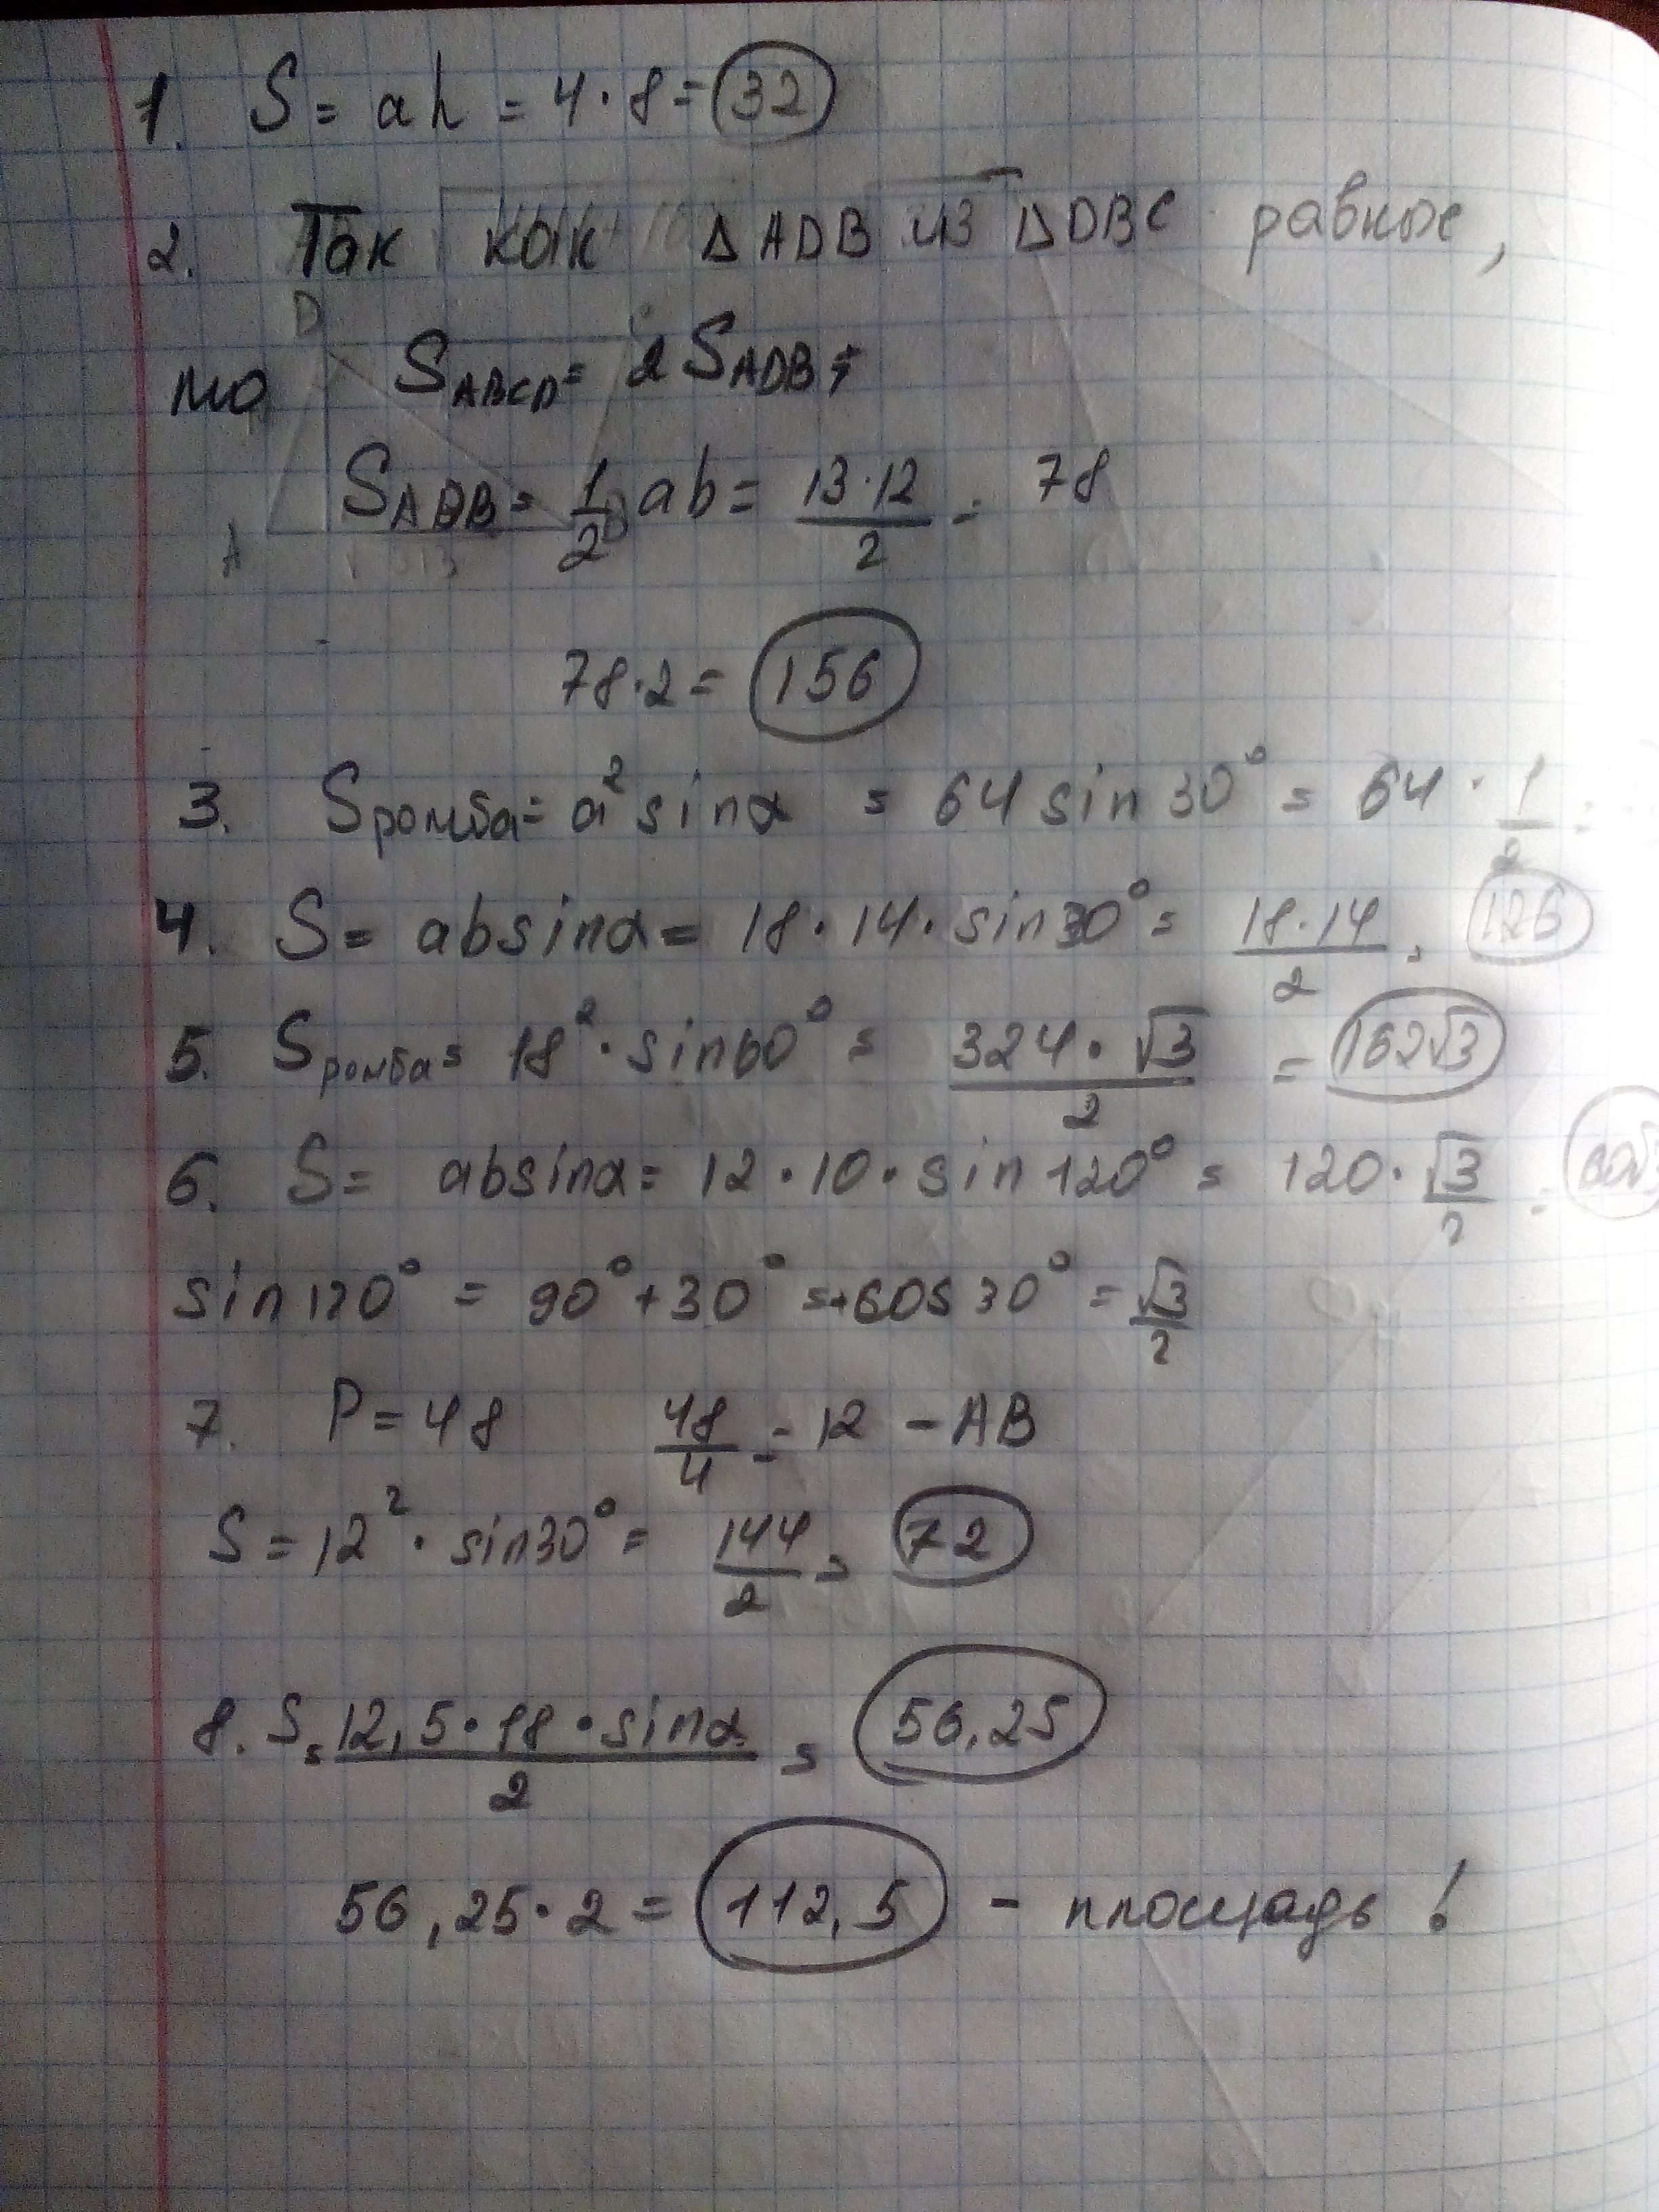 1. S = ah = 4·8 = 32
2. Так как △ADB и △DBC равные,
то S_ABCD = 2 S_ADB
S_ADB = 1/2 ab = 13·12/2 = 78
78·2 = 156
3. Sромба = a² sinα = 64 sin30° = 64 · 1/2 =
4. S = absinα = 18·14·sin30° = 18·14/2 = 126
5. Sромба = 18²·sin60° = 324·√3/2 = 162√3
6. S = absinα = 12·10·sin120° = 120·√3/2 = 60√3
sin120° = 90° + 30° = +cos30° = √3/2
7. P = 48 48/4 = 12 – AB
S = 12²·sin30° = 144/2 = 72
8. S = 12,5·18·sinα/2 = 56,25
56,25·2 = 112,5 – площадь!